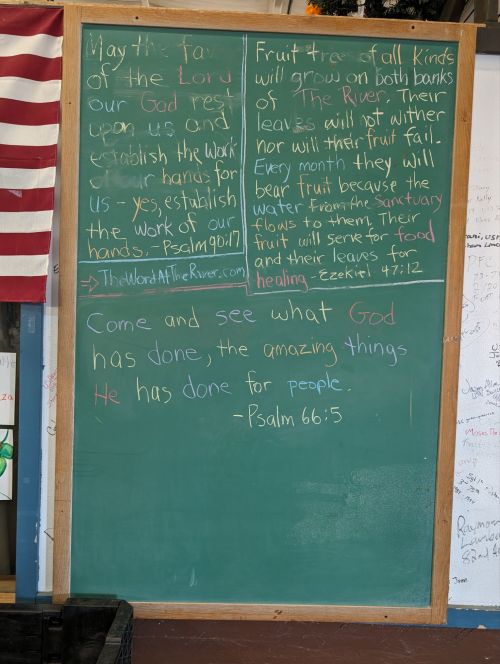 May the fav
of the Lord
our God rest
upon us and
establish the work
of our hands for
us - yes, establish
the work of our
hands. - Psalm 90:17
→ TheWordAtTheRiver.com
Fruit trees of all kinds
will grow on both banks
of The River. Their
leaves will not wither
nor will their fruit fail.
Every month they will
bear fruit because the
water From the Sanctuary
flows to them. Their
fruit will serve for food
and their leaves for
healing - Ezekiel 47:12
Come and see what God
has done, the amazing things
He has done for people.
- Psalm 66:5
Raymon
82nd